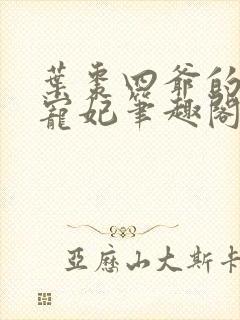 葉棗四爺的
寵妃筆趣閣
亞歷山大斯卡